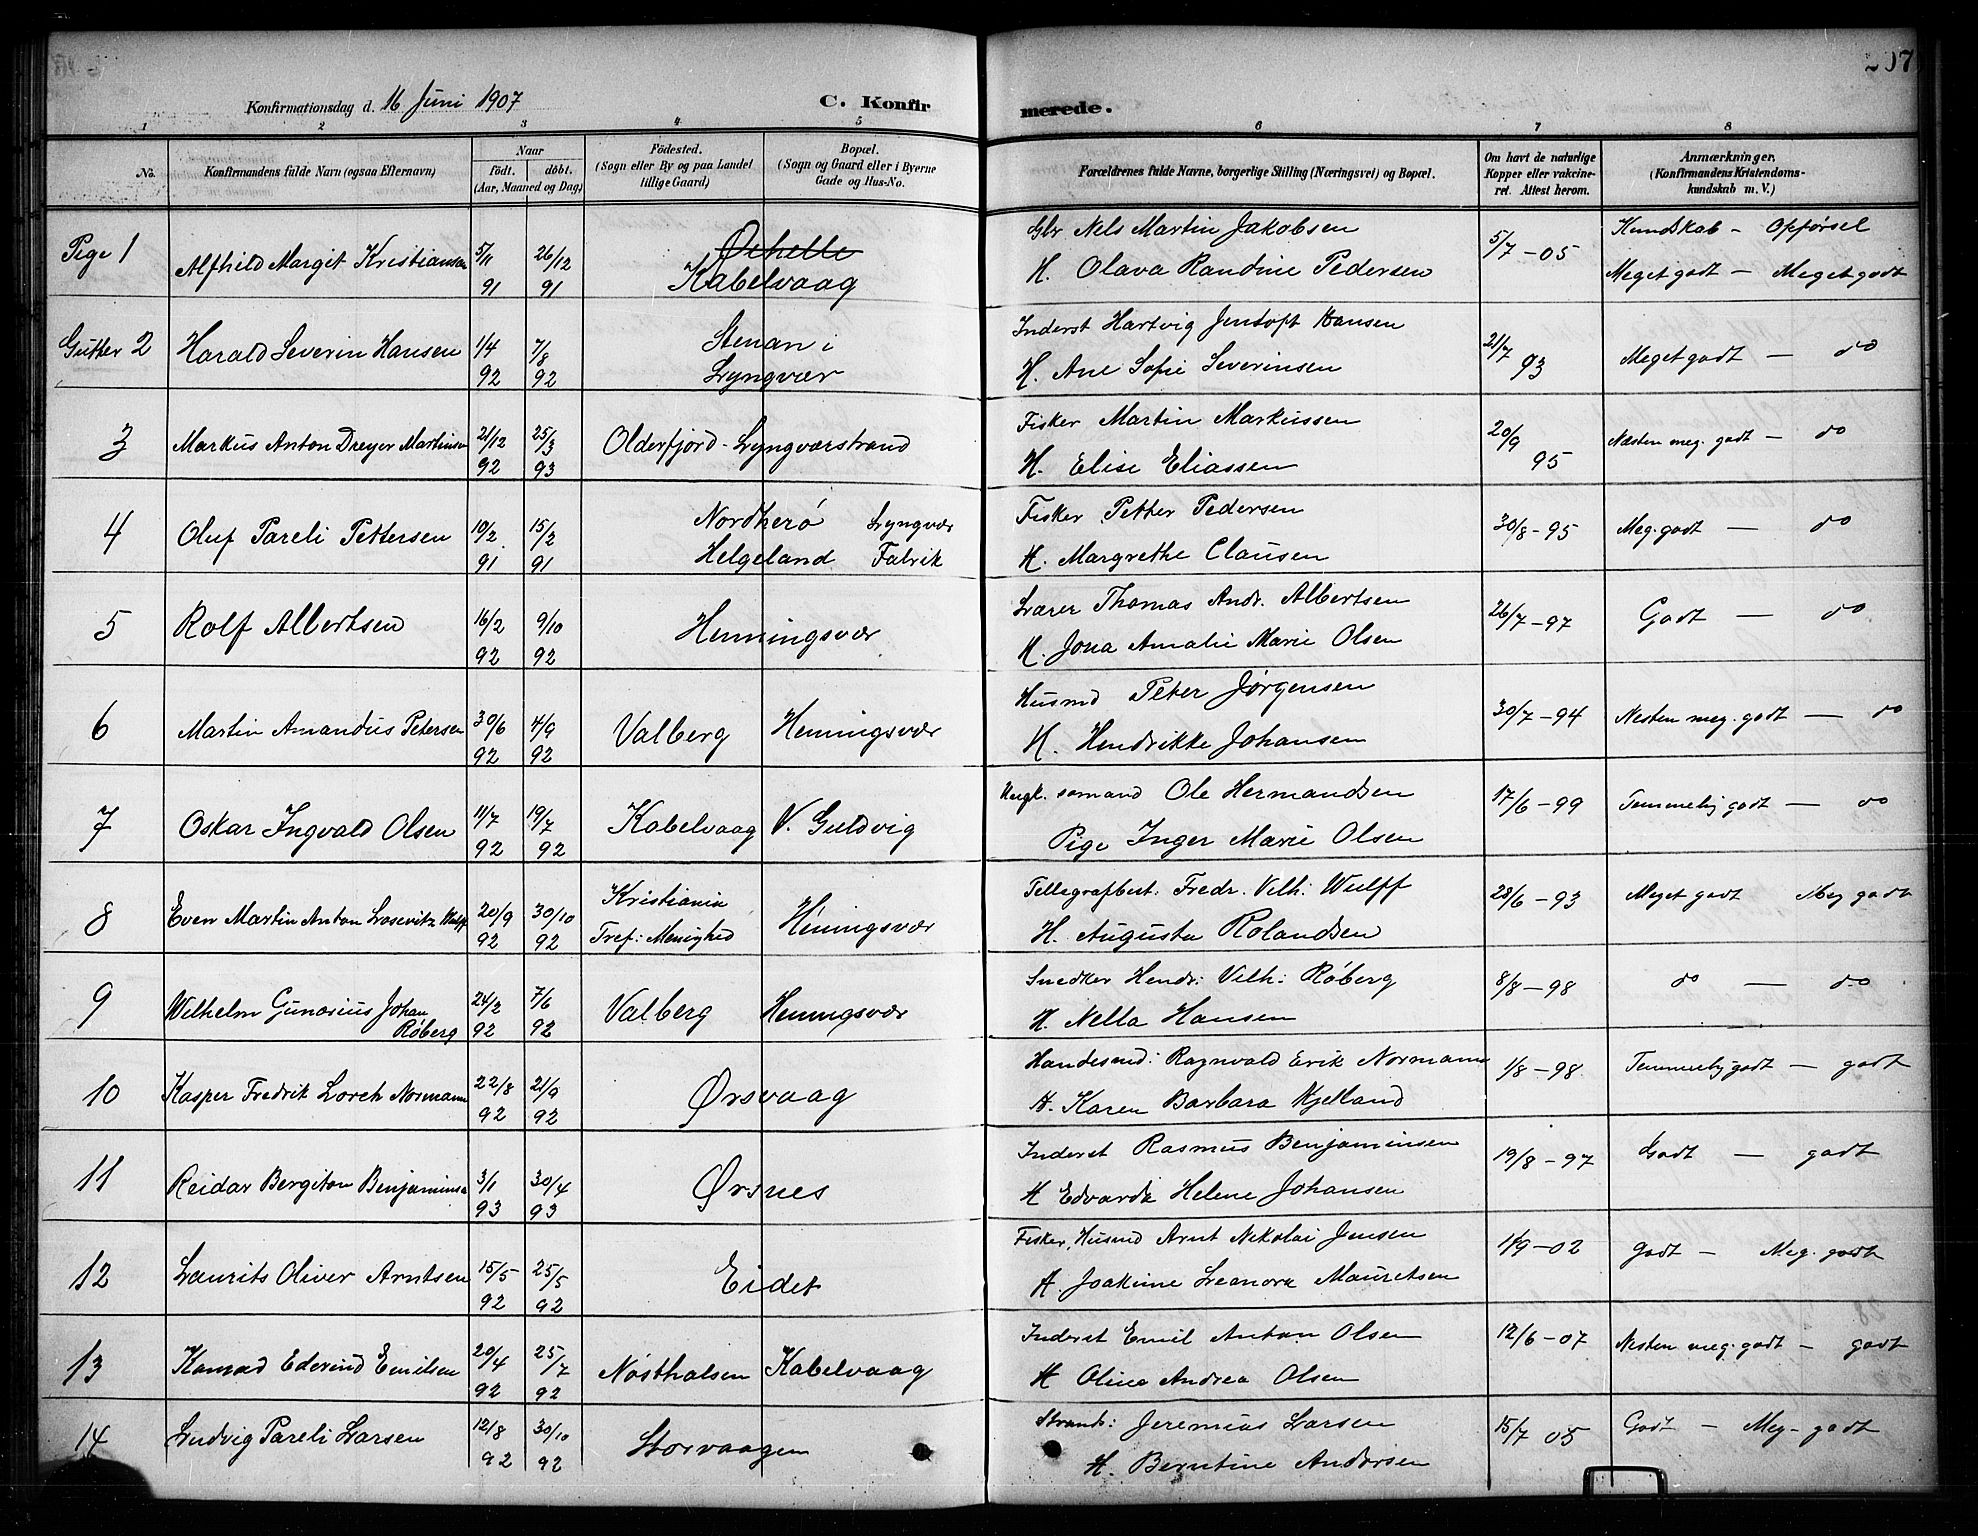 207
Konfirmationsdag d. 16 Juni 1907
C. Konfirmerede.
1 2 3 4 5 6 7 8
No.
Konfirmandens fulde Navn (ogsaa Efternavn)
Naar
födt. döbt.
(Aar, Maaned og Dag)
Födested.
(Sogn eller By og paa Landet
tillige Gaard)
Bopæl.
(Sogn og Gaard eller i Byerne
Gade og Hus-No.
Forældrenes fulde Navne, borgerlige Stilling (Næringsvei) og Bopæl.
Om havt de naturlige
Kopper eller vakcine-
ret. Attest herom.
Anmærkninger.
(Konfirmandens Kristendoms-
kundskab m. V.)
Pige 1 Alfhild Margit Kristiansen 5/11 91 26/12 91 Kabelvaag
Gbr Nels Martin Jakobsen 5/7-05 Kundskab - Opførsel
H. Olava Randine Pedersen Meget godt - Meget godt
Gutter 2 Harald Severin Hansen 1/4 92 7/8 92 Stenan i
Lyngvær
Inderst Hartvig Jentoft Hansen 21/7 93 Meget godt - do
H. Ane Sofie Severinsen
3 Markus Anton Dreyer Martinsen 21/12 92 25/3 93 Olderfjord - Lyngværstrand
Fisker Martin Markussen 20/9 95 Næsten meg. godt - do
H. Elise Eliassen
4 Oluf Pareli Pettersen 10/2 91 15/2 91 Nordherø Lyngvær
Helgeland Fabrik
Fisker Petter Pedersen 30/8-95 Meg. godt - do
H. Margrethe Clausen
5 Rolf Albertsen 16/2 92 9/10 92 Henningsvær
Lærer Thomas Andr. Albertsen 26/7-97 Godt - do
H. Jona Amalie Marie Olsen
6 Martin Amandus Petersen 30/6 92 4/9 92 Valberg Henningsvær
Husmd Peter Jørgensen 30/7-94 Nesten meg. godt - do
H. Hendrikke Johansen
7 Oskar Ingvald Olsen 11/7 92 19/7 92 Kabelvaag V. Guldvig
Ungk. sømand Ole Hermandsen 17/6-99 Temmelig godt - do
Pige Inger Marie Olsen
8 Even Martin Anton Wulff 20/9 92 30/10 92 Kristiania Henningsvær
Tref: Menighed
Tellegrafbest. Fredr. Vilh: Wulff 28/6-93 Meget godt Meg godt
H. Augusta Rolandsen
9 Wilhelm Gunarius Johan
Røberg 24/2 92 7/6 92 Valberg Henningsvær
Snedker Hendr: Vilh: Røberg 8/8-98 do - do
H. Nella Hansen
10 Kasper Fredrik Lorch Normann 22/8 92 21/9 92 Ørsvaag
Handelsmd: Ragnvald Erik Normann 1/8-98 Temmelig godt - godt
H. Karen Barbara Kjelland
11 Reidar Bergiton Benjaminsen 3/1 93 30/4 93 Ørsnes
Inderst Rasmus Benjaminsen 19/8-97 Godt - godt
H Edvarda Helene Johansen
12 Laurits Oliver Arntsen 15/5 92 25/5 92 Eidet
Fisker, Husmd Arnt Nikolai Jensen 1/9-02 Godt - Meg. godt
H. Joakime Leanora Mauretsen
13 Konrad Ederind Emilsen 20/4 92 25/7 92 Nøsthalsen Kabelvaag
Inderst Emil Anton Olsen 12/6-07 Nesten meg. godt - godt
H Oline Andrea Olsen
14 Ludvig Pareli Larsen 12/8 92 30/10 92 Storvaagen
Strands: Jeremias Larsen 15/7 05 Godt - Meg- godt
H. Berntine Andersen